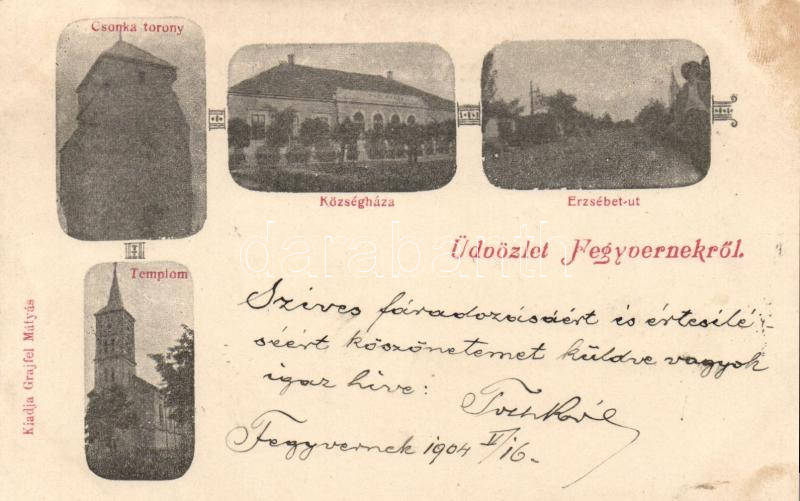 Csonka torony
Községháza
Erzsébet-ut
Üdvözlet Fegyvernekről.
Templom
Kiadja Grajfel Mátyás
darabanth
Szives fáradozásáért is értesilé-
séért köszönetemet küldve vagyok
igaz hive:
Fegyvernek 1904 V/16-